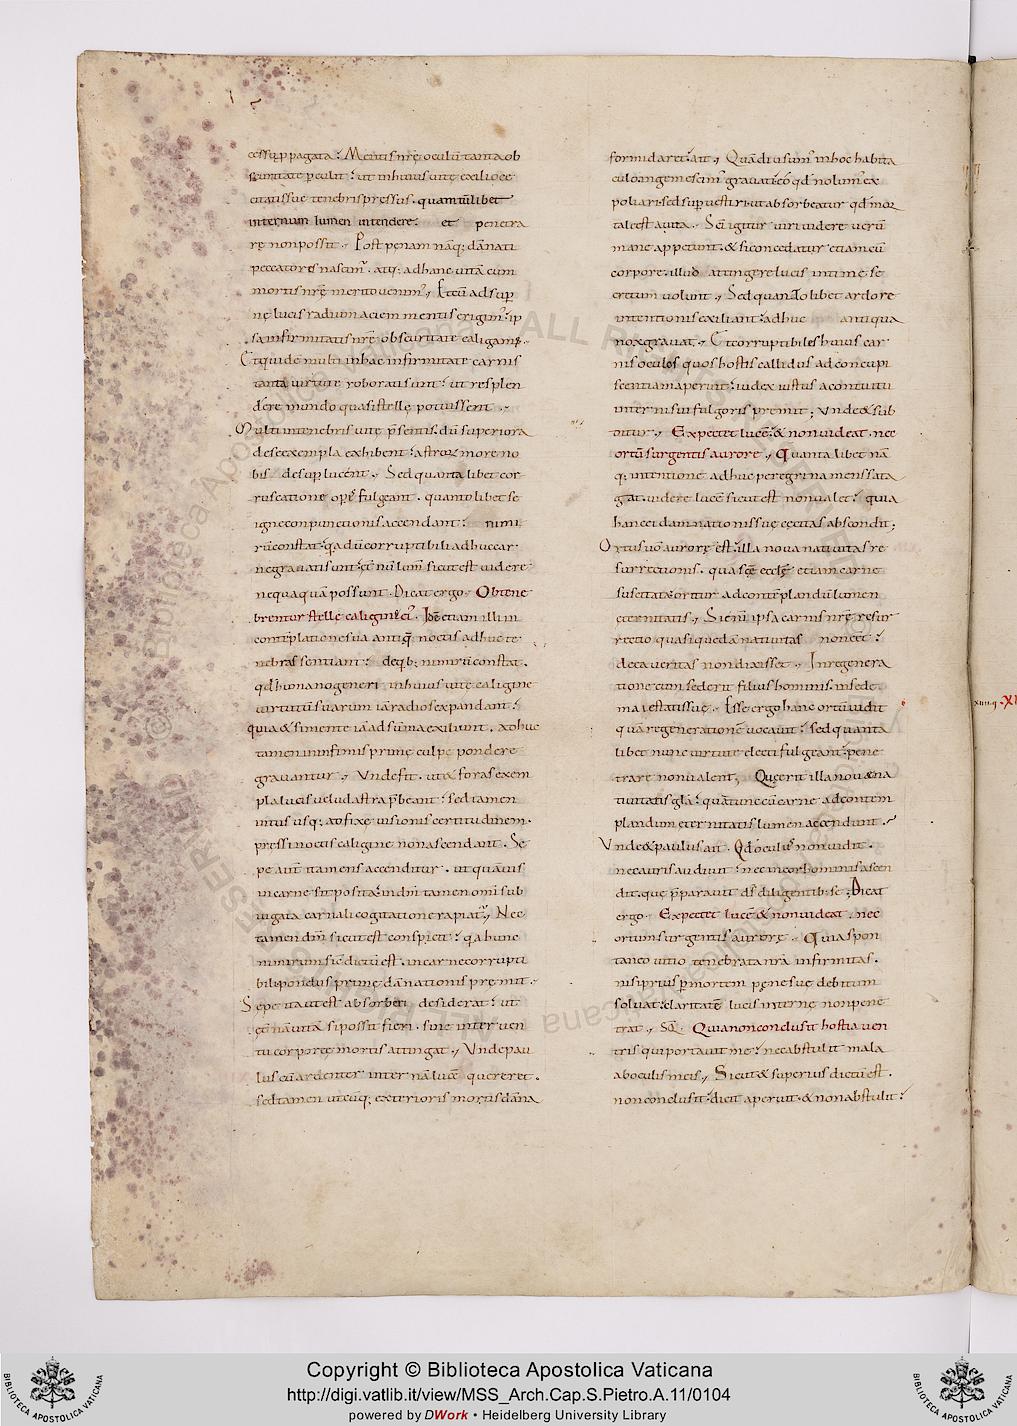 cessu ꝓpagata; Mentis nr̄ę oculū tanta ob
scuritate ꝑculit; ut in huius uitę exilio cę
citatis suę tenebris pressus. quantūlibet
internum lumen intendere; et penetra
rę non possit; Post penam nāq; dānati
peccatores nascimur. atq; ad hanc uitā cum
mortis nr̄ę merito uenim'; Et cū ad suꝑ
nę lucis radium aciem mentis erigim'; ip
sa infirmitatis nr̄ę obscuritate caligam';
Et quidē multi in hac infirmitate carnis
tanta uirtute roborati sunt; ut resplen
dere mundo quasi stellę potuissent;
Multi in tenebris uitę p̄sentis. dū superiora
de se exempla exhibent; astrorum more no
bis desuꝑ lucent; Sed quanta libet cor
ruscatione oꝑis fulgeant. quanto libet se
igne conpunctionis accendant; nimi
rū constat; qa dū corruptibili adhuc car
ne grauati sunt; ęt̄nū lum̄ sicut est uidere
nequaquā possunt. Dicat ergo. Obtene
brentur stellę caligine ei'. Idē etiam illi in
contēplatione sua antiq̄ noctis adhuc te
nebras sentiant; de qb; nimirū constat.
qd humano generi in huius uitę caligine
uirtutū suarum iā radios expandant;
quia & si mente iā ad sūma exiliunt. adhuc
tamen in infimis primę culpę pondere
grauantur; Vnde fit. ut & foras exem
pla lucis uelud astra p̄beant; sed tamen
intus usq; ad fixę uisionis certitudinem.
pressi noctis caligine non ascendant. Sę
pe aut̄ ita mens accenditur. ut quāuis
in carne sit posita; in dm̄ tamen om̄i sub
iugata carnali cogitatione rapiat'; Nec
tamen dm̄ sicut est conspicit; qa hunc
nimirum sic̄ dictū est. in carne corrupti
bili pondus primę dānationis premit;
Sępe ita ut est absorberi desiderat; ut
ęt̄nā uitā si possit fieri. sine interuen
tu corporeę mortis attingat; Vnde pau
lus cū ardenter internā lucē quereret.
sed tamen utcūq; exterioris mortis dāna
formidaret; ait; Quādiu sum' in hoc habita
culo ingemescim' grauati; eo qd nolum' ex
poliari. sed suꝑuestiri. ut absorbeatur qd mor
tale est a uita; Sc̄i igitur uiri uidere uerū
mane appetunt. & si concedatur etiam cū
corpore. illud attingere lucis intimę se
cretum uolunt; Sed quantolibet ardore
intentionis exiliant; adhuc antiqua
nox grauat; Et corruptibiles huius car
nis oculos quos hostis callidus ad concupi
scentiam aperuit; iudex iustus a contuitu
interni sui fulgoris premit; Vnde & sub
ditur; Expectet lucē; & non uideat. nec
ortū surgentis aurorę; Quanta libet nā
q; intentione adhuc peregrina mens sata
gat. uidere lucē sicut est non ualet; quia
hanc ei damnationis suę cęcitas abscondit;
Ortus uō aurorę est; illa noua natiuitas re
surrectionis. qua sc̄ę eccl̄ę etiam carne
suscitata oritur ad contēplandū lumen
ęternitatis; Si enim ipsa carnis nr̄ę resur
rectio quasi quedā natiuitas non eēt;
de ea ueritas non dixisset; In regenera
tione cum sederit filius hominis. in sede
maiestatis suę; Esse ergo hanc ortū uidit
quā regenerationē uocauit; sed quanta
libet nunc uirtute electi fulgeant; pene
trare non ualent; Quę erit illa nouę na
tiuitatis gl̄a; qua tunc cū carne ad contem
plandum ęternitatis lumen accendunt;
Vnde & paulus ait. Qd oculus non uidit.
nec auris audiuit; nec in cor hominis ascen
dit. quę p̄parauit ds̄ diligentib; se; Dicat
ergo. Expectet lucē & non uideat. nec
ortum surgentis aurorę. Quia spon
taneo uitio tenebrata nr̄a infirmitas.
nisi prius ꝑ mortem pęnę suę debitum
soluat; claritatē lucis internę non pene
trat; Sq̄. Quia non conclusit hostia uen
tris qui portauit me; nec abstulit mala
ab oculis meis; Sicut & superius dictū est.
non conclusit; dicit aperuit. & non abstulit;
Copyright © Biblioteca Apostolica Vaticana
http://digi.vatlib.it/view/MSS_Arch.Cap.S.Pietro.A.11/0104
powered by DWork • Heidelberg University Library